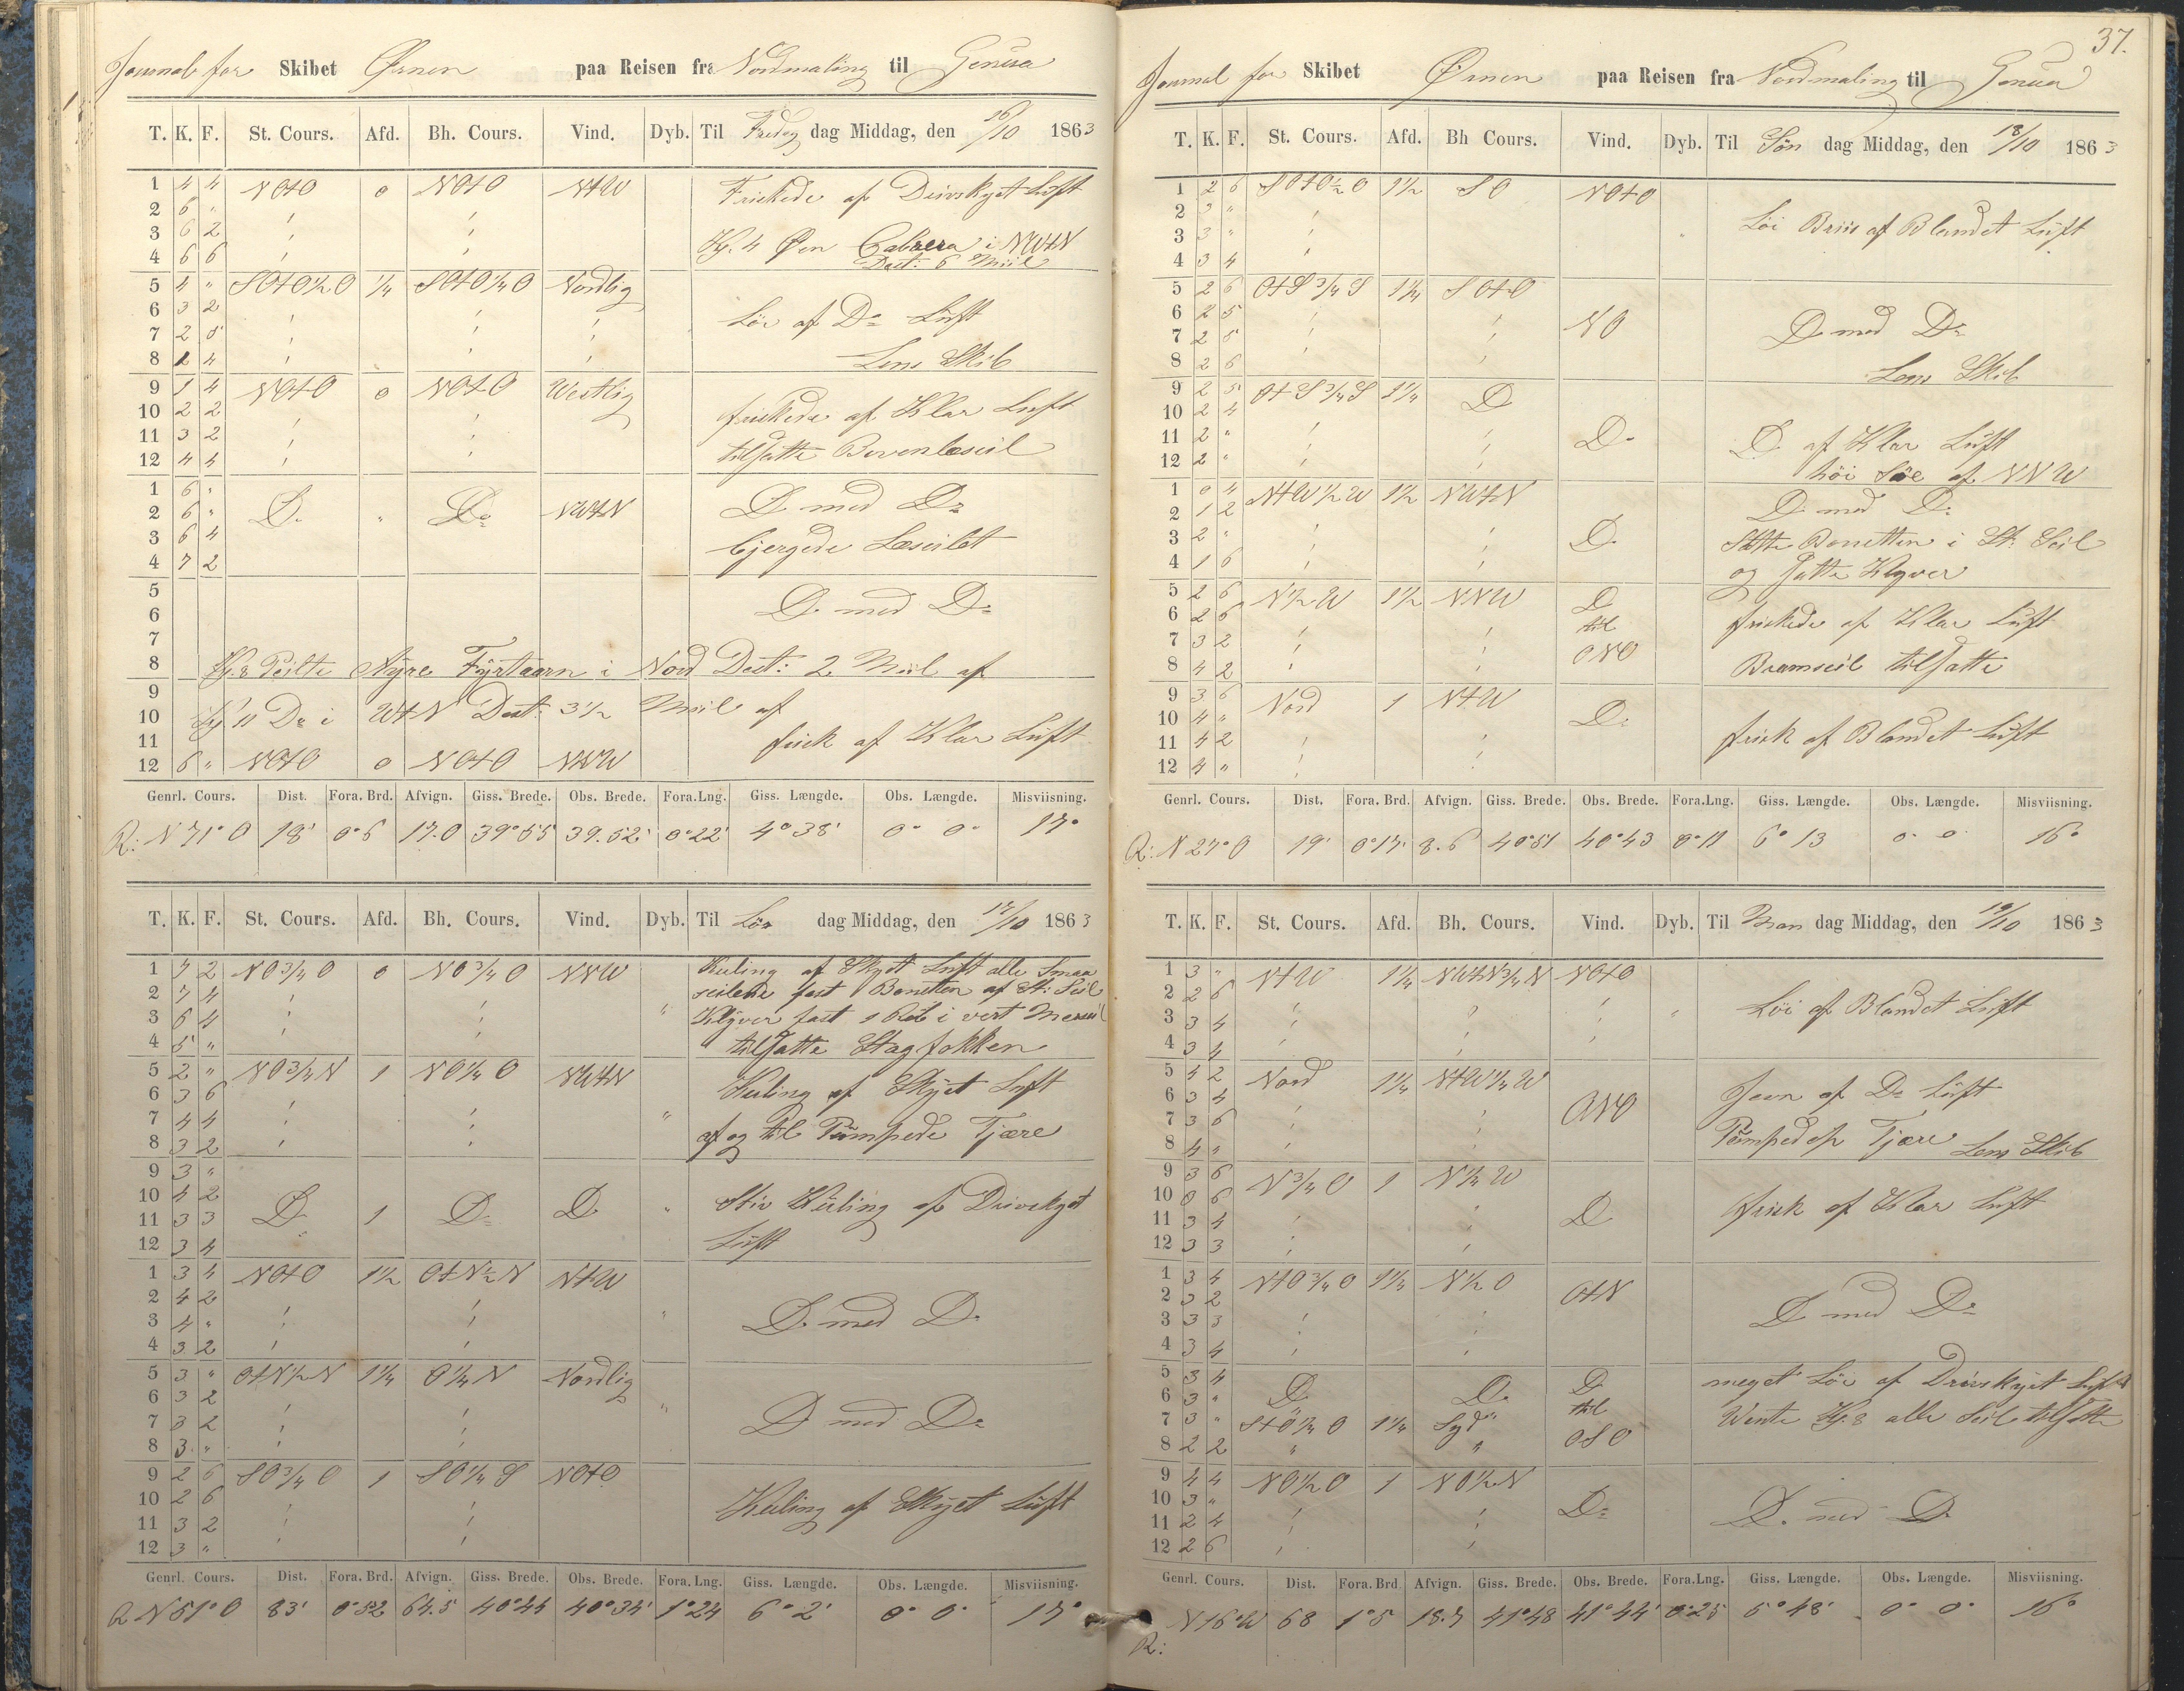 Journal for Skibet Ørnen paa Reisen fra Nordmaling til Genua
T. K. F. St. Cours. Afd. Bh. Cours. Vind. Dyb. Til Fredag dag Middag, den 16/10 1863
1 4 4 NOtO 0 NOtO NtW Friskede af Drivskyet Luft
2 6 "
3 6 2 Kl. 4 Øen Cabrera i NWtN
4 6 6 Dest: 6 Miil
5 4 " SOtO½O ¼ SOtO¼O Nordlig
6 3 2 Løi af Do Luft
7 2 5
8 2 4 Lens Skib
9 1 4 NOtO 0 NOtO Westlig
10 2 2 friskede af Klar Luft
11 3 2 tilsatte Bovenlæseil
12 4 4
1 6 "
2 6 " Do " Do NWtN Do med Do
3 6 4 bjergede Læseilet
4 7 2
5
6 Do med Do
7
8 Kl. 8 Peilte Fyrtaarn i Nord Dest: 2 Miil af
9
10 Kl 11 Do i WtN Dest: 3½ Miil af
11 frisk af Klar Luft
12 6 " NOtO 0 NOtO NNW
Genrl. Cours. Dist. Fora. Brd. Afvign. Giss. Brede. Obs. Brede. Fora.Lng. Giss. Længde. Obs. Længde. Misviisning.
R: N 71° O 18' 0°6 17.0 39°55 39.52' 0°22' 4°38' 0° 0° 17°
T. K. F. St. Cours. Afd. Bh. Cours. Vind. Dyb. Til Lør dag Middag, den 17/10 1863
1 7 2 NO¾O 0 NO¾O NNW Kuling af Skyet Luft alle Smaa
2 7 4 seilene fast Bonetten af St: Seil
3 6 4 " Klyver fast 1 Reb i vert Mersseil
4 5 " tilsatte Stagfokken
5 2 " NO¾N 1 NO¼O NWtN Kuling af Skyet Luft
6 3 6
7 4 4 " af og til Pumpede Tjære
8 3 2
9 3 "
10 4 2 Stiv Kuling af Drivskyet
11 3 3 Do 1 Do Do "
12 3 4 Luft
1 3 4 NOtO 1½ OtN½N NtW
2 4 2 Do med Do
3 4 " "
4 3 2
5 3 " OtN½N 1¼ O¼N Nordlig
6 3 2 "
7 3 2 Do med Do
8 3 "
9 2 6 SO¾O 1 SO¼S NOtO
10 2 6 Kuling af Skyet Luft
11 3 2
12 3 "
Genrl. Cours. Dist. Fora. Brd. Afvign. Giss. Brede. Obs. Brede. Fora.Lng. Giss. Længde. Obs. Længde. Misviisning.
R N 51° O 83' 0°52 64.5 40°44 40°34' 1°24 6°2' 0° 0° 17°
37.
Journal for Skibet Ørnen paa Reisen fra Nordmaling til Genua
T. K. F. St. Cours. Afd. Bh Cours. Vind. Dyb. Til Søn dag Middag, den 18/10 1863
1 2 6 SOtO½O 1½ SO NOtO
2 3 " Løi Briis af Blandet Luft
3 3 " "
4 3 4
5 2 6 OtS¾S 1¼ SOtO
6 2 5 NO Do med Do
7 2 5
8 2 6 Lens Skib
9 2 5 OtS¾S 1¼ Do
10 2 4
11 2 " Do Do af Klar Luft
12 2 " høi Søe af NNW
1 0 4 NtW½W 1½ NWtN Do med Do
2 1 2
3 2 " Do Satte Bonetten i St: Seil
4 1 6 og Satte Klyver
5 2 6 N½W 1½ NNW Do
6 2 6 til friskede af Klar Luft
7 3 2 ONO
8 4 2 Bramseil tilsatte
9 3 6 Nord 1 NtW
10 4 " Do
11 4 2 frisk af Blandet Luft
12 4 "
Genrl. Cours. Dist. Fora. Brd. Afvign. Giss. Brede. Obs. Brede. Fora.Lng. Giss. Længde. Obs. Længde. Misviisning.
R: N 27° O 19' 0°17' 8.6 40°51 40°43 0°11 6°13 0° 0 16°
T. K. F. St. Cours. Afd. Bh. Cours. Vind. Dyb. Til Man dag Middag, den 19/10 1863
1 3 " NtW 1¼ NWtN¾N NOtO
2 2 6 Løi af Blandet Luft
3 3 4 "
4 3 4
5 4 2 Nord 1¼ NtW¼W Jevn af Do Luft
6 3 4
7 3 6 ONO Pumpede Tjære
8 4 " Lens Skib
9 3 6 N¾O 1 N¼W
10 0 6 frisk af Klar Luft
11 3 4 Do
12 3 3
1 3 4 NtO¾O 1¼ N½O OtN
2 3 2 Do med Do
3 3 3
4 3 4
5 3 4 meget Løi af Drivskyet Luft
6 3 " Do Do Do til
7 3 " StO¼O 1¼ Syd Wente Kl. 8 alle Seil tilsatte
8 2 2 " " OSO
9 4 4 NO½O 1 NO½N
10 3 " Do Do med Do
11 2 4
12 2 6
Genrl. Cours. Dist. Fora. Brd. Afvign. Giss. Brede. Obs. Brede. Fora.Lng. Giss. Længde. Obs. Længde. Misviisning.
R: N 16° W 68 1°5 18.7 41°48 41°44' 0°25 5°48' 0° 0° 16°